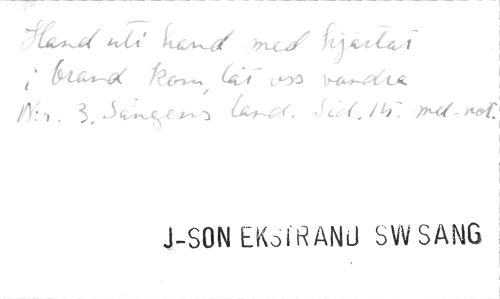 Hand uti hand med hjärtat
i brand kom, låt oss vandra
N:r. 3. Sångens land. Sid. 15. med not.
J-SON EKSTRAND SW SANG